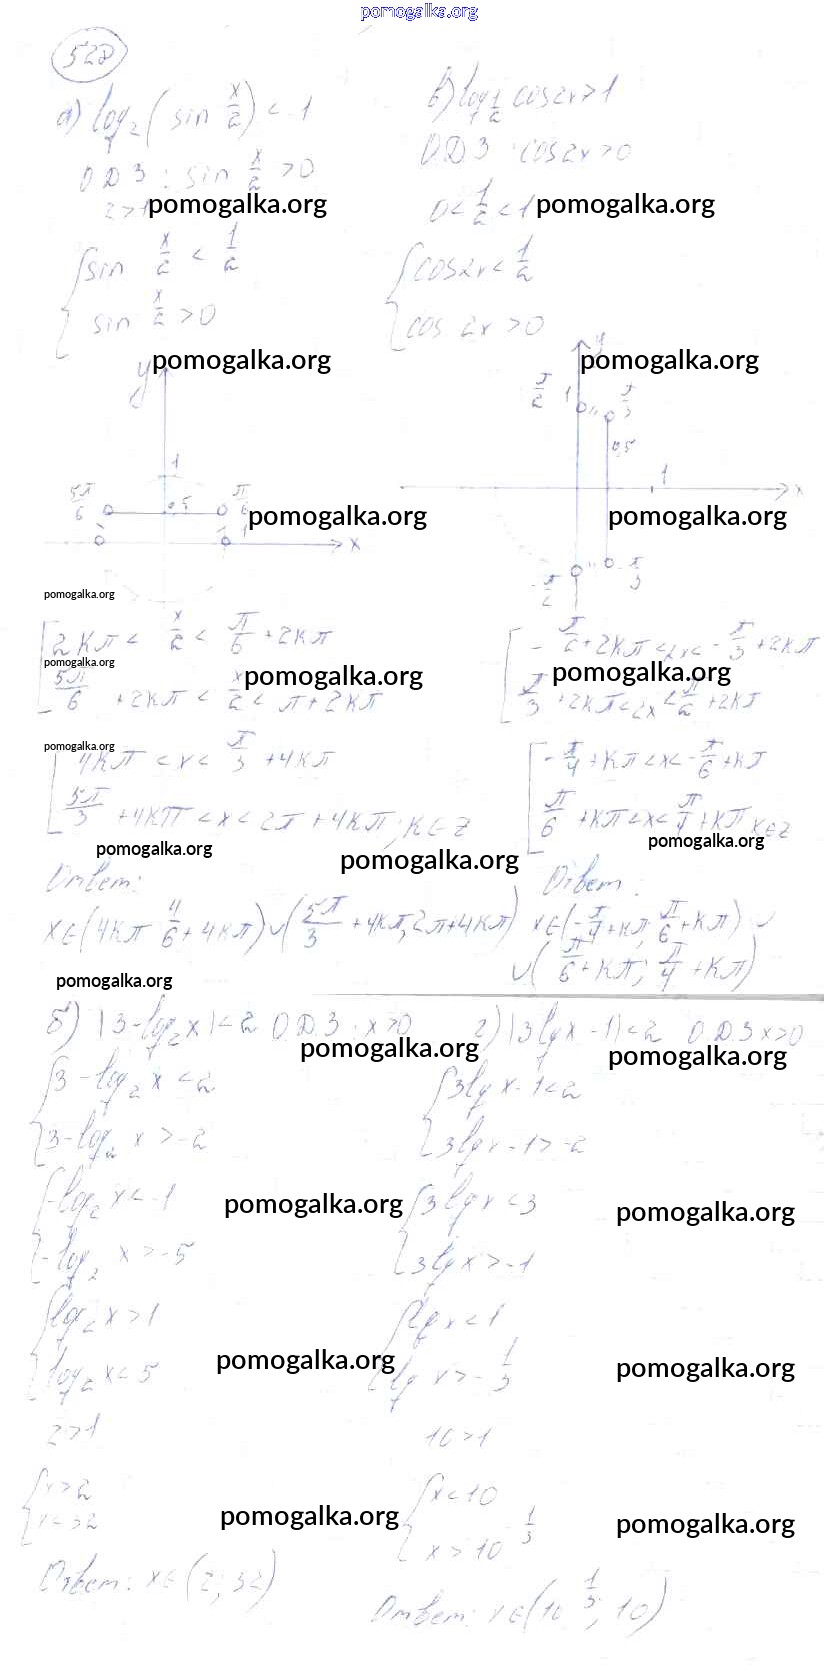 pomogalka.org
528
а) log₂(sin x/2) < -1
О.Д.З: sin x/2 > 0
2>1 pomogalka.org
{sin x/2 < 1/2
sin x/2 > 0
pomogalka.org
y
1
5π/6 0,5 π/6
pomogalka.org
x
pomogalka.org
[2kπ < x/2 < π/6 + 2kπ
pomogalka.org
5π/6 + 2kπ < x/2 < π + 2kπ
pomogalka.org
pomogalka.org
[4kπ < x < π/3 + 4kπ
5π/3 + 4kπ < x < 2π + 4kπ; k∈Z
pomogalka.org
pomogalka.org
Ответ:
x∈(4kπ 4/6 + 4kπ)∪(5π/3 + 4kπ; 2π+4kπ)
pomogalka.org
в) log 1/2 cos2x > 1
О.Д.З cos2x > 0
0 < 1/2 < 1 pomogalka.org
{cos2x < 1/2
cos 2x > 0
y
pomogalka.org
π/2 1 π/3
0,5
1
x
pomogalka.org
-π/2 -π/3
[-π/2 + 2kπ < 2x < -π/3 + 2kπ
pomogalka.org
π/3 + 2kπ < 2x < π/2 + 2kπ
[-π/4 + kπ < x < -π/6 + kπ
π/6 + kπ < x < π/4 + kπ k∈Z
pomogalka.org
Ответ:
x∈(-π/4 + kπ; π/6 + kπ) ∪
∪(π/6 + kπ; π/4 + kπ)
б) |3-log₂x| < 2 О.Д.З: x>0
pomogalka.org
{3-log₂x < 2
3-log₂x > -2
{-log₂x < -1
pomogalka.org
-log₂x > -5
{log₂x > 1
log₂x < 5
pomogalka.org
2>1
{x>2
x<32
pomogalka.org
Ответ: x∈(2; 32)
г) |3lgx - 1| < 2 О.Д.З x>0
pomogalka.org
{3lgx - 1 < 2
3lgx - 1 > -2
{3lgx < 3
pomogalka.org
3lgx > -1
{lgx < 1
lgx > -1/3
pomogalka.org
10>1
{x<10
x > 10 1/3
pomogalka.org
Ответ: x∈(10 1/3; 10)